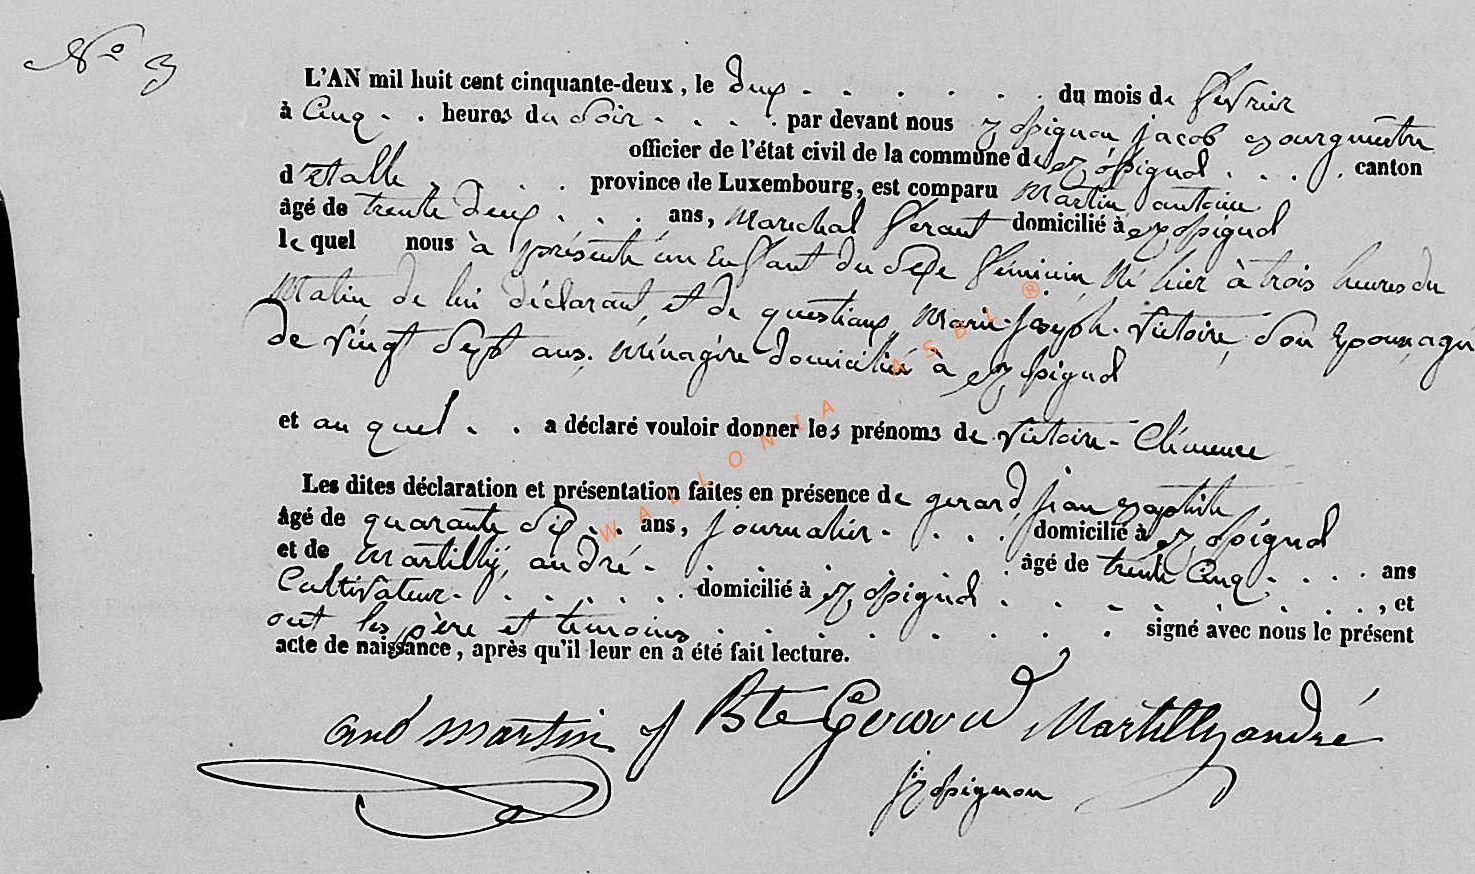 N° 3
L'AN mil huit cent cinquante-deux, le deux . . . . . . du mois de février
à Cinq . . heures du Soir . . . . par devant nous jacob Bourgmestre
officier de l'état civil de la commune de . . . . canton
d'Etalle . . . . province de Luxembourg, est comparu Martin antoine
âgé de trente deux . . . ans, Marechal ferant domicilié à
le quel nous à présenté un Enfant du Sexe féminin, Né hier à trois heures du
Matin, de lui déclarant, et de questiaux Marie-Joseph-Victoire, Son Epouse, agée
de Vingt Sept ans, Ménagère domicilié à
et au quel . . a déclaré vouloir donner les prénoms de Victoire-Clémence
Les dites déclaration et présentation faites en présence de gerard, jean Baptiste
âgé de quarante Six . . ans, journalier . . . . domicilié à
et de Martilly, andré . . . . . . âgé de trente Cinq . . . . ans
Cultivateur . . . . . . . domicilié à . . . . . . . . , et
ont les père et temoins . . . . . . . . signé avec nous le présent
acte de naissance, après qu'il leur en a été fait lecture.
ant Martin J Bte Gerard Martilly andré